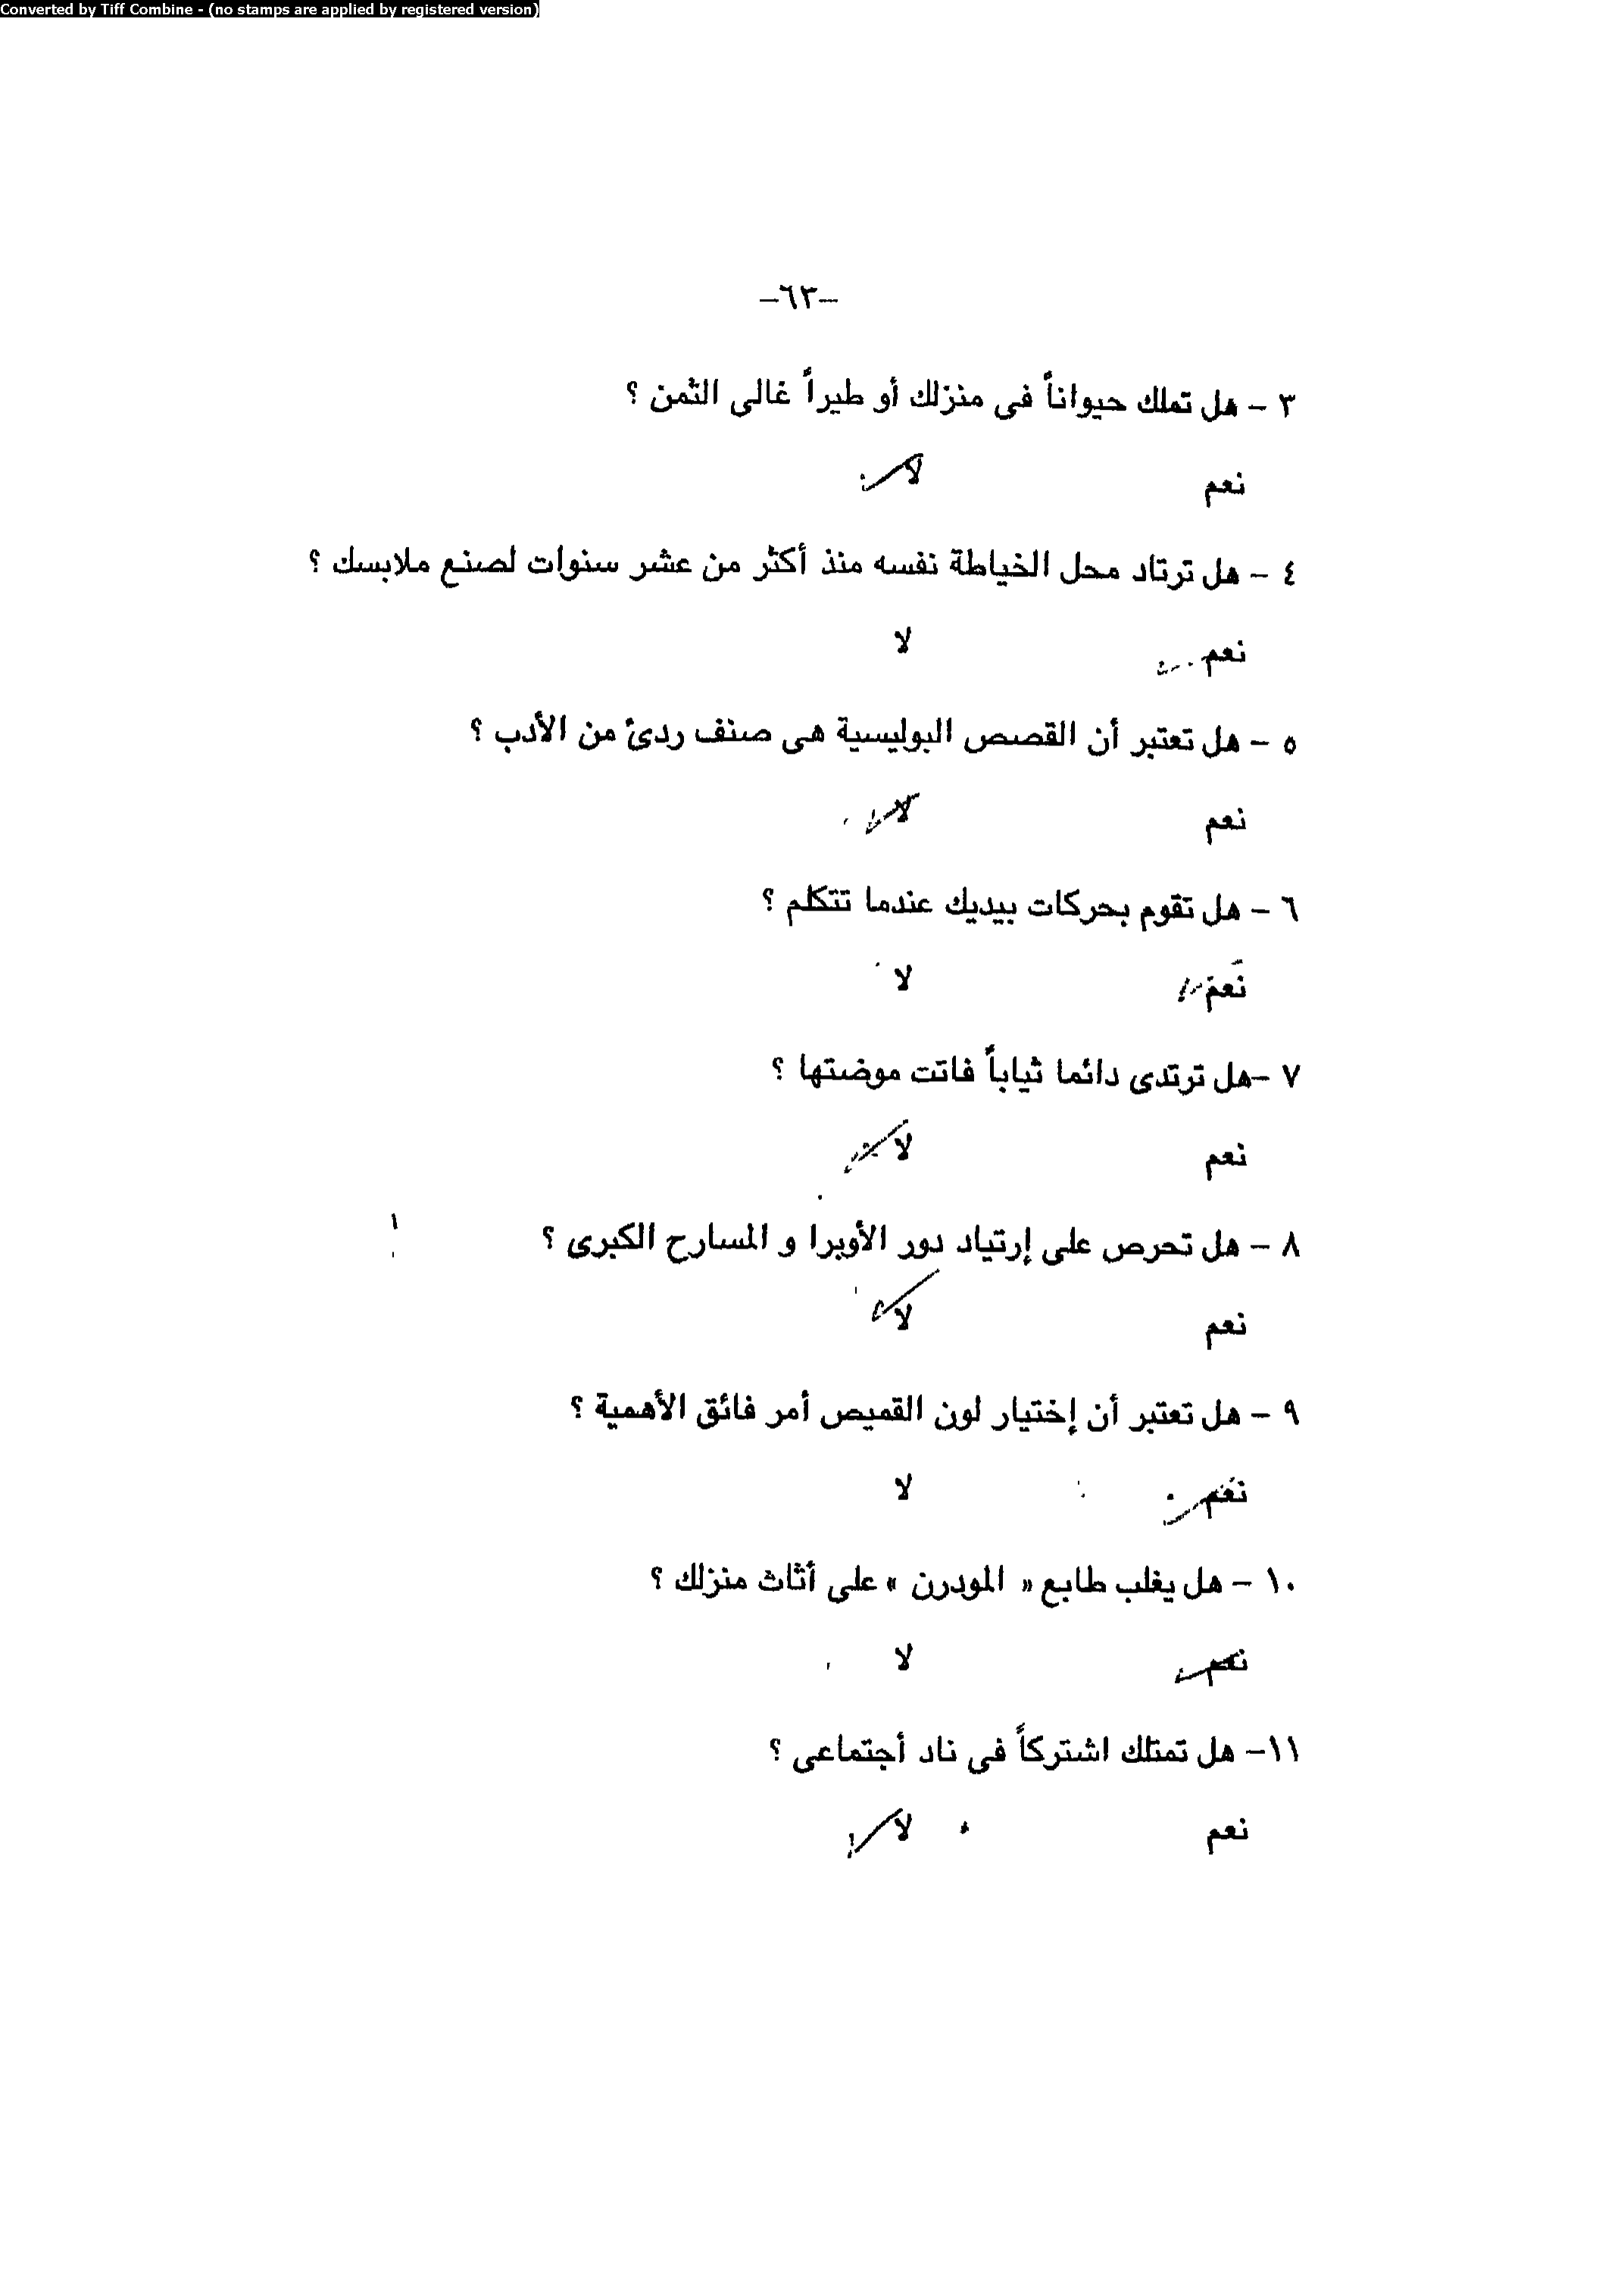 Converted by Tiff Combine - (no stamps are applied by registered version)
–٦٣–
٣ – هل تملك حيواناً فى منزلك أو طيراً غالى الثمن ؟
نعم لا
٤ – هل ترتاد محل الخياطة نفسه منذ أكثر من عشر سنوات لصنع ملابسك ؟
نعم لا
٥ – هل تعتبر أن القصص البوليسية هى صنف ردئ من الأدب ؟
نعم لا
٦ – هل تقوم بحركات بيديك عندما تتكلم ؟
نعم لا
٧ –هل ترتدى دائما ثياباً فاتت موضتها ؟
نعم لا
٨ – هل تحرص على إرتياد دور الأوبرا و المسارح الكبرى ؟
نعم لا
٩ – هل تعتبر أن إختيار لون القميص أمر فائق الأهمية ؟
نعم لا
١٠ – هل يغلب طابع « المودرن » على أثاث منزلك ؟
نعم لا
١١– هل تمتلك اشتركاً فى ناد أجتماعى ؟
نعم لا